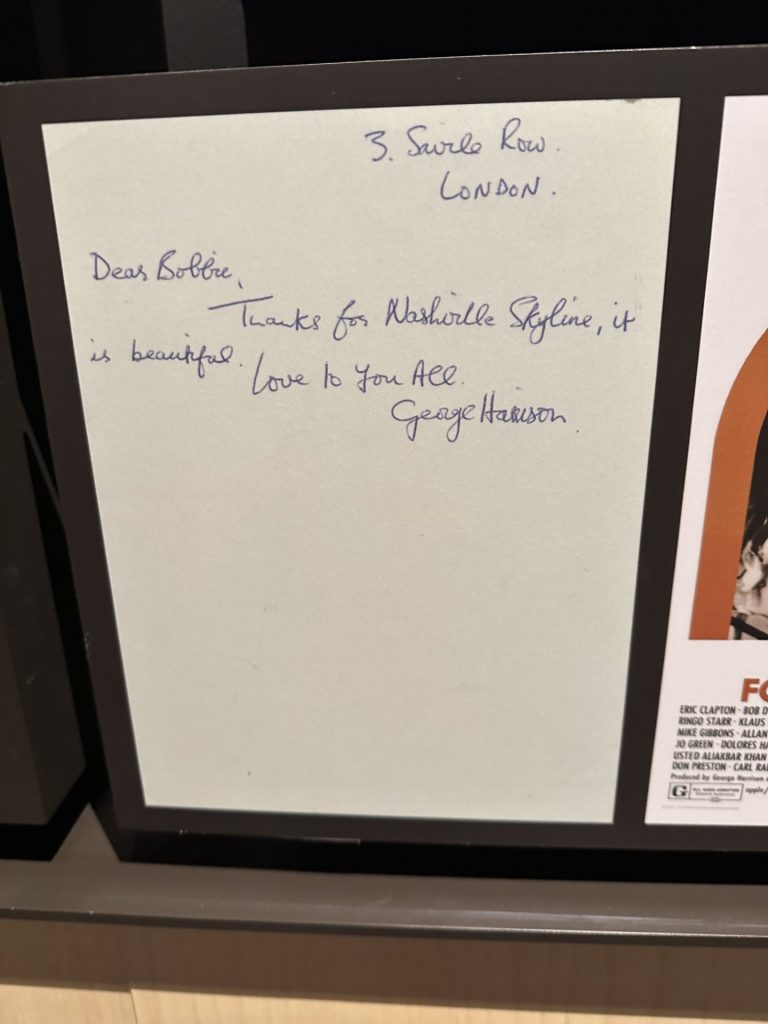 3. Savile Row.
LONDON.
Dear Bobbie,
Thanks for Nashville Skyline, it
is beautiful.
Love to You All.
George Harrison.
FO
ERIC CLAPTON · BOB D
RINGO STARR · KLAUS
MIKE GIBBONS · ALLAN
JO GREEN · DOLORES HA
USTED ALIAKBAR KHAN
DON PRESTON · CARL RA
Produced by George Harrison
G
apple/